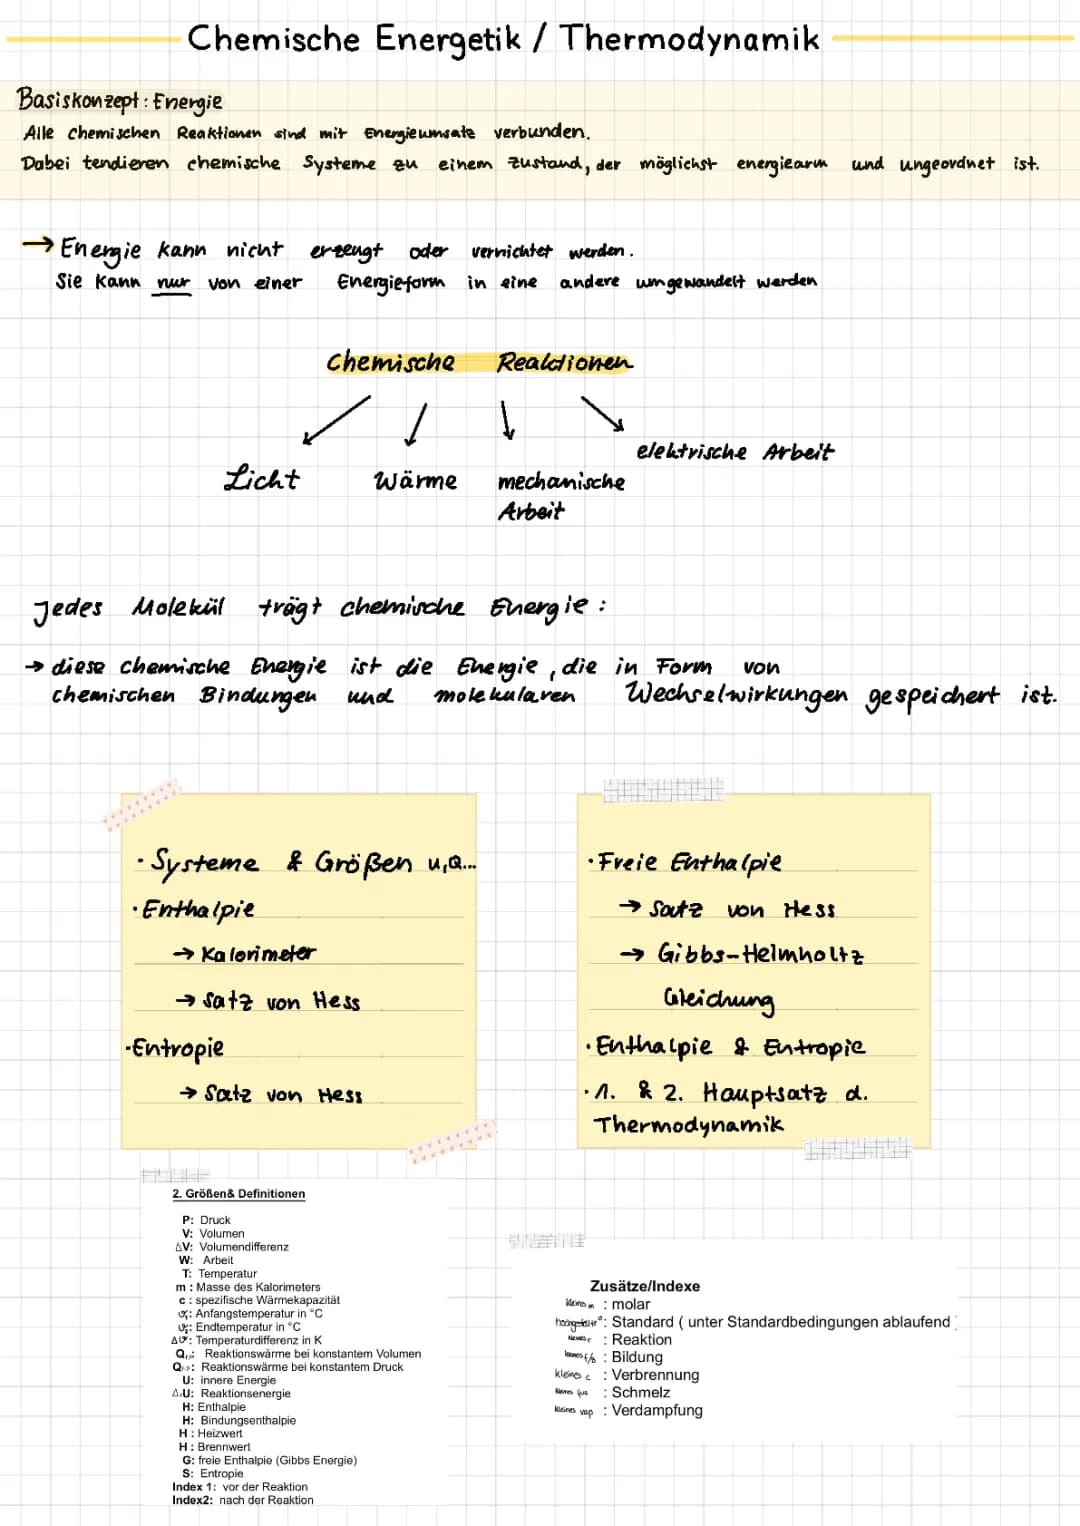 Chemische Energetik / Thermodynamik
Basiskonzept: Energie
Alle chemischen Reaktionen sind mit Energieumsatz verbunden.
Dabei tendieren chemische Systeme zu einem Zustand, der möglichst energiearm und ungeordnet ist.
→ Energie kann nicht erzeugt oder vernichtet werden.
Sie kann nur von einer Energieform in eine andere umgewandelt werden
Chemische Reaktionen
elektrische Arbeit
Licht Wärme mechanische
Arbeit
Jedes Molekül trägt chemische Energie:
→ diese chemische Energie ist die Energie, die in Form von
chemischen Bindungen und molekularen Wechselwirkungen gespeichert ist.
· Systeme & Größen u,Q...
· Enthalpie
→ Kalorimeter
→ Satz von Hess
· Entropie
→ Satz von Hess
· Freie Enthalpie
→ Satz von Hess
→ Gibbs-Helmholtz
Gleichung
· Enthalpie & Entropie
· 1. & 2. Hauptsatz d.
Thermodynamik
2. Größen& Definitionen
P: Druck
V: Volumen
ΔV: Volumendifferenz
W: Arbeit
T: Temperatur
m : Masse des Kalorimeters
c : spezifische Wärmekapazität
: Anfangstemperatur in °C
: Endtemperatur in °C
Δϑ: Temperaturdifferenz in K
Reaktionswärme bei konstantem Volumen
Reaktionswärme bei konstantem Druck
U: innere Energie
ΔrU: Reaktionsenergie
H: Enthalpie
H: Bindungsenthalpie
H : Heizwert
H : Brennwert
G: freie Enthalpie (Gibbs Energie)
S: Entropie
Index 1: vor der Reaktion
Index2: nach der Reaktion
Zusätze/Indexe
kleines m : molar
hochgestellt°: Standard ( unter Standardbedingungen ablaufend )
kleines r : Reaktion
kleines f/b : Bildung
kleines c : Verbrennung
kleines fus : Schmelz
kleines vap : Verdampfung